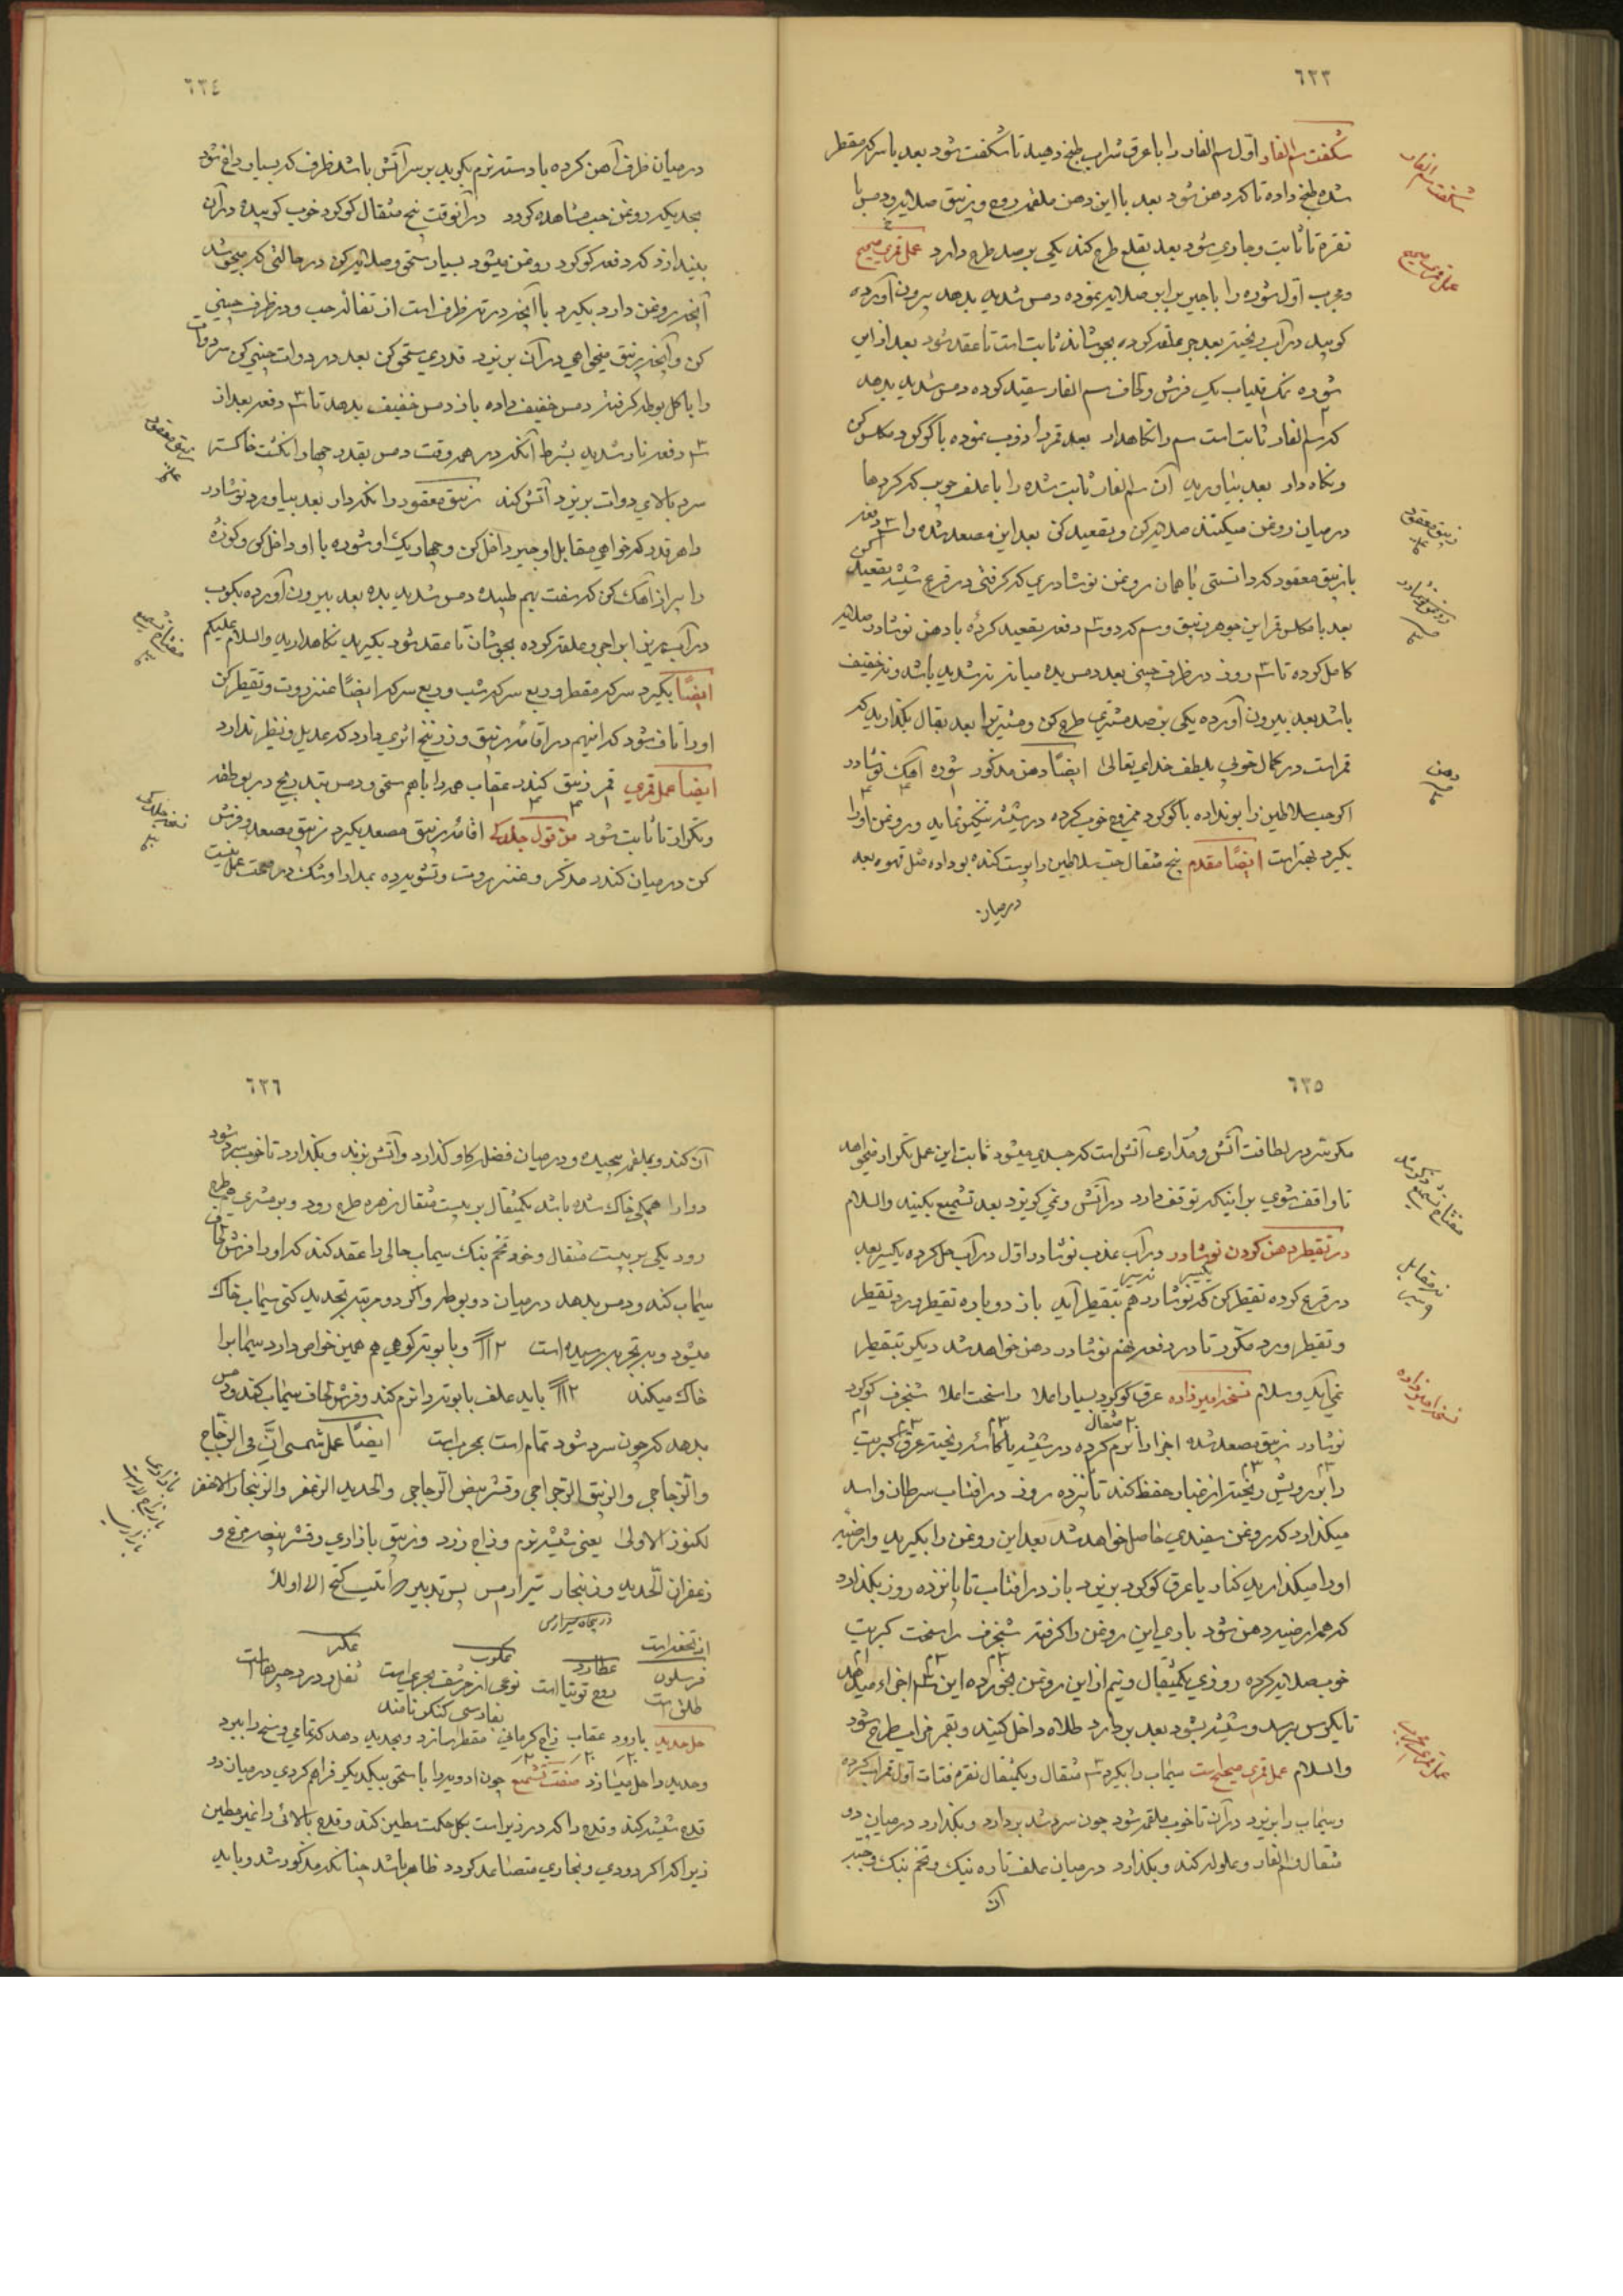 ٦٣٣
شکفت سم الفار اول سم الفار را با عرق شراب طبخ دهید تا شکفت شود بعد با سرکه مقطر
شده طبخ داده تا که دهن شود بعد با این دهن ملغمه روح و زیبق صلایه و دمس با
نقره تا ثابت و جاری شود بعد بقلع طرح کند یکی بر صد طرح دارد عمل قمری صحیح
و مجرب اول شوره را با جیر برابر صلایه نموده دمس شدید بدهد بیرون آورده
کوبید در آب ریخته بعد جر علقه کرده بجوشاند ثابت است تا عقد شود بعد از این
شوره نمک قلیاب یک فرش و لحاف سم الفار سقید کوده دمس شدید بدهد
که سم الفار ثابت است سم را نکاهدار بعد قمر را ذوب نموده با کوکرد مکلس کن
و نکاه دار بعد بیاورید آن سم الفار ثابت شده را با علف چوب که کرد ها
در میان روغن میکنند صلایه کن و تصعید کن بعد این مصعد شده را ۳ دفعه
با زیبق معقود که دانستی با همان روغن نوشادری که کرفتی در قرع شیشه تصعید کن
بعد با مکلس قمر این جوهر زیبق و سم که در ۳ دفعه تصعید کردهٔ با دهن نوشادر صلایه
کامل کوده تا ۳ روز در ظرف چینی بعد دمس بده میانه نه شدید باشد و نه خفیف
باشد بعد بیرون آورده یکی بر صد مشتری طرح کن و مشتری را بعد بقال بکذارید که
قمر است در کمال خوبی بلطف خدای تعالی ایضاً دهن مذکور شوره آهک نوشادر
اکر حب سلاطین را بو نداده با کوکرد ممزوج خوب کرده در شیشه تنکیس نماید و روغن او را
بکیرد بهتر است ایضاً مقدم پنج مثقال حب سلاطین را پوست کنده بو داده مثل قهوه بعد
در میان
شکفت سم الفار
عمل قمری صحیح
زیبق معقود
روغن نوشادر
دهن
٦٣٤
در میان ظرف آهن کرده با دسته نرم بکوبید بر سر آتش باشد ظرف که بسیار داغ شود
بحدیکه روغن حب مشاهده کردد در آنوقت پنج مثقال کوکرد خوب کوبیده در آن
بیندازد که دفعه کوکرد روغن میشود بسیار سحق و صلایه کن در حالتی که میجوشد
آنچه روغن دارد بکیرد با آنچه در ته ظرف است از تفاله حب و در ظرف چینی
کن و آنچه زیبق میخواهی در آن بریزد قدری سحق کن بعد در دوات چینی کن سر دوات
را با کل بوطه کرفته دمس خفیف داده باز دمس خفیف بدهد تا ۳ دفعه بعد از
۳ دفعه نار شدید بشرط آنکه در همه وقت دمس بقدر چهار انکشت خاکستر
سرد بالای دوات بریزد آتش کند زیبق معقود را نکهدار بعد بیاورد نوشادر
را هر قدر که خواهی مقابل او جیر داخل کن و چهار یک او شوره با او داخل کن و کوزهٔ
را پر از آهک کن که سفت بهم طپیده دمس شدید بده بعد بیرون آورده بکوب
در آب بریز ابر اجی و علقه کوده بجوشان تا عقد شود بکیرید نکاهدارید والسلام علیکم
ایضاً بکیرد سرکه مقطر و ربع سرکه شب و ربع سرکه ایضاً عنزروت و تقطیر کن
او را تا صاف شود که انیهم در اقامهٔ زیبق و زرنیخ اثری دارد که عدیل و نظیر ندارد
ایضاً عمل قمری قمر زیبق کندر عقاب همه را باهم سحق و دمس بتدریج در بوطقه
و تکرار تا ثابت شود من قول جلدکی اقامهٔ زیبق مصعد بکیرد زیبق مصعد و فرش
کن در میان کندر مذکر و عنزروت و تشویه ده بمدارا و شک در صحت عمل نیست
زیبق معقود
مفتاح تشمیع
نسخه جلدکی
٦٣٥
مکر سر در لطافت آتش و مدارای آتش است که جسدی میشود ثابت این عمل تکرار میخواهد
تا واقف شوی بر اینکه توقف دارد در آتش و نمی کریزد بعد تشمیع بکنید والسلام
در تقطیر دهن کردن نوشادر در آب عذب نوشادر اول در آب حل کرده یکسیر بعد
در قرع کوده تقطیر کن که نوشادر هم بتقطیر آید باز دوباره تقطیر و رد تقطیر
و تقطیر و رد مکرر تا در دفعه نهم نوشادر دهن خواهد شد دیکر بتقطیر
نمی آید وسلام نسخه امیرزاده عرق کوکرد بسیار اعلا راسخت اعلا شنجرف کوکرد
نوشادر زیبق مصعد شده اجزا را نرم کرده در شیشه یا کاسه ریخته عرق کبریت
را بر رویش ریخته از غبار حفظ کند تا پانزده روز در افتاب سرطان و اسد
میکذارد که روغن سفیدی حاصل خواهد شد بعد این روغن را بکیرید و ارضیه
او را میکذارید کنار با عرق کوکرد بریزد باز در افتاب تا پانزده روز بکذارد
که همه ارضیه دهن شود باری این روغن را کرفته شنجرف راسخت کبریت
خوب صلایه کرده روزی یکمثقال و نیم از این روغن بخورده این ۳ اجزاء میدهد
تا یکوس برسد و شیشه بشود بعد بردارد طلاه داخل کنید و بقمر فراسطرح شود
والسلام عمل قمری صحیح است سیماب را بکیرد ۳ مثقال و یکمثقال نقره فتات اول قمر آب کرده
و سیماب را بریزد در آن تا خوب ملغمه شود چون سرد شد بردارد و بکذارد در میان دو
مثقال سم الفار و علوله کند و بکذارد در میان علف تازه بنک و تخم بنک و چند
آن
مفتاح تشمیع
نسخه امیرزاده
عمل قمری مجرب
٦٣٦
آن کند و بملغمه پیچیده و در میان فضله کاو کذارد و آتش بزند و بکذارد تا خوب سرد شود
دوارا همکی خاک شده باشد یکمثقال بر بیست مثقال زهره طرح رود و بر مشتری طرح
رود یکی بر بیست مثقال و خود تخم بنک سیماب حالی را عقد کند که او را فرش لحاف
سیماب کند و دمس بدهد در میان دو بوطه و اکر دو مرتبه تجدید کنی سیماب خاک
میشود و بتجربه رسیده است و بابونه کوهی هم همین خواص دارد سیماب را
خاک میکند باید علف بابونه را نرم کند و فرش لحاف سیماب کند و دمس
بدهد که چون سرد شود تمام است مجرب است ایضاً عمل شمسی انّ فی الزجاج
و الزجاجی والزیبق الزجراجی و قشر بیض الدجاجی و الحدید الزعفر و الزنجار الاخضر
لکنوز الاولی یعنی شیشه نرم و زاج زرد و زیبق بازاری و قشر بیضه مرغ و
زعفران الحدید و زنجار تیرارمس پس تدبیر مراتیب کنج الا اولهٔ
از تحفه است
فرسلون
طلق است
عطارد
روح توتیا است
عکوب
نوعی از خرشف بحری است
بفارسی کنکر نامند
عکر
ثفل و درد چیزها است
حل حدید بارود عقاب زاج کرمانی مقطر سازد و بحدید دهد که تمامی وسخ را ببرد
و حدید را حل میسازد صفت تشمیع چون ادویه را با سحق بیکدیکر فراهم کردی در میان دو
قدح شیشه کند و قدح را که در زیر است بکل حکمت مطین کند و قدح بالائی را غیر مطین
زیرا که اکر دودی و بخاری متصاعد کردد ظاهر باشد چنانکه مذکور شد و باید